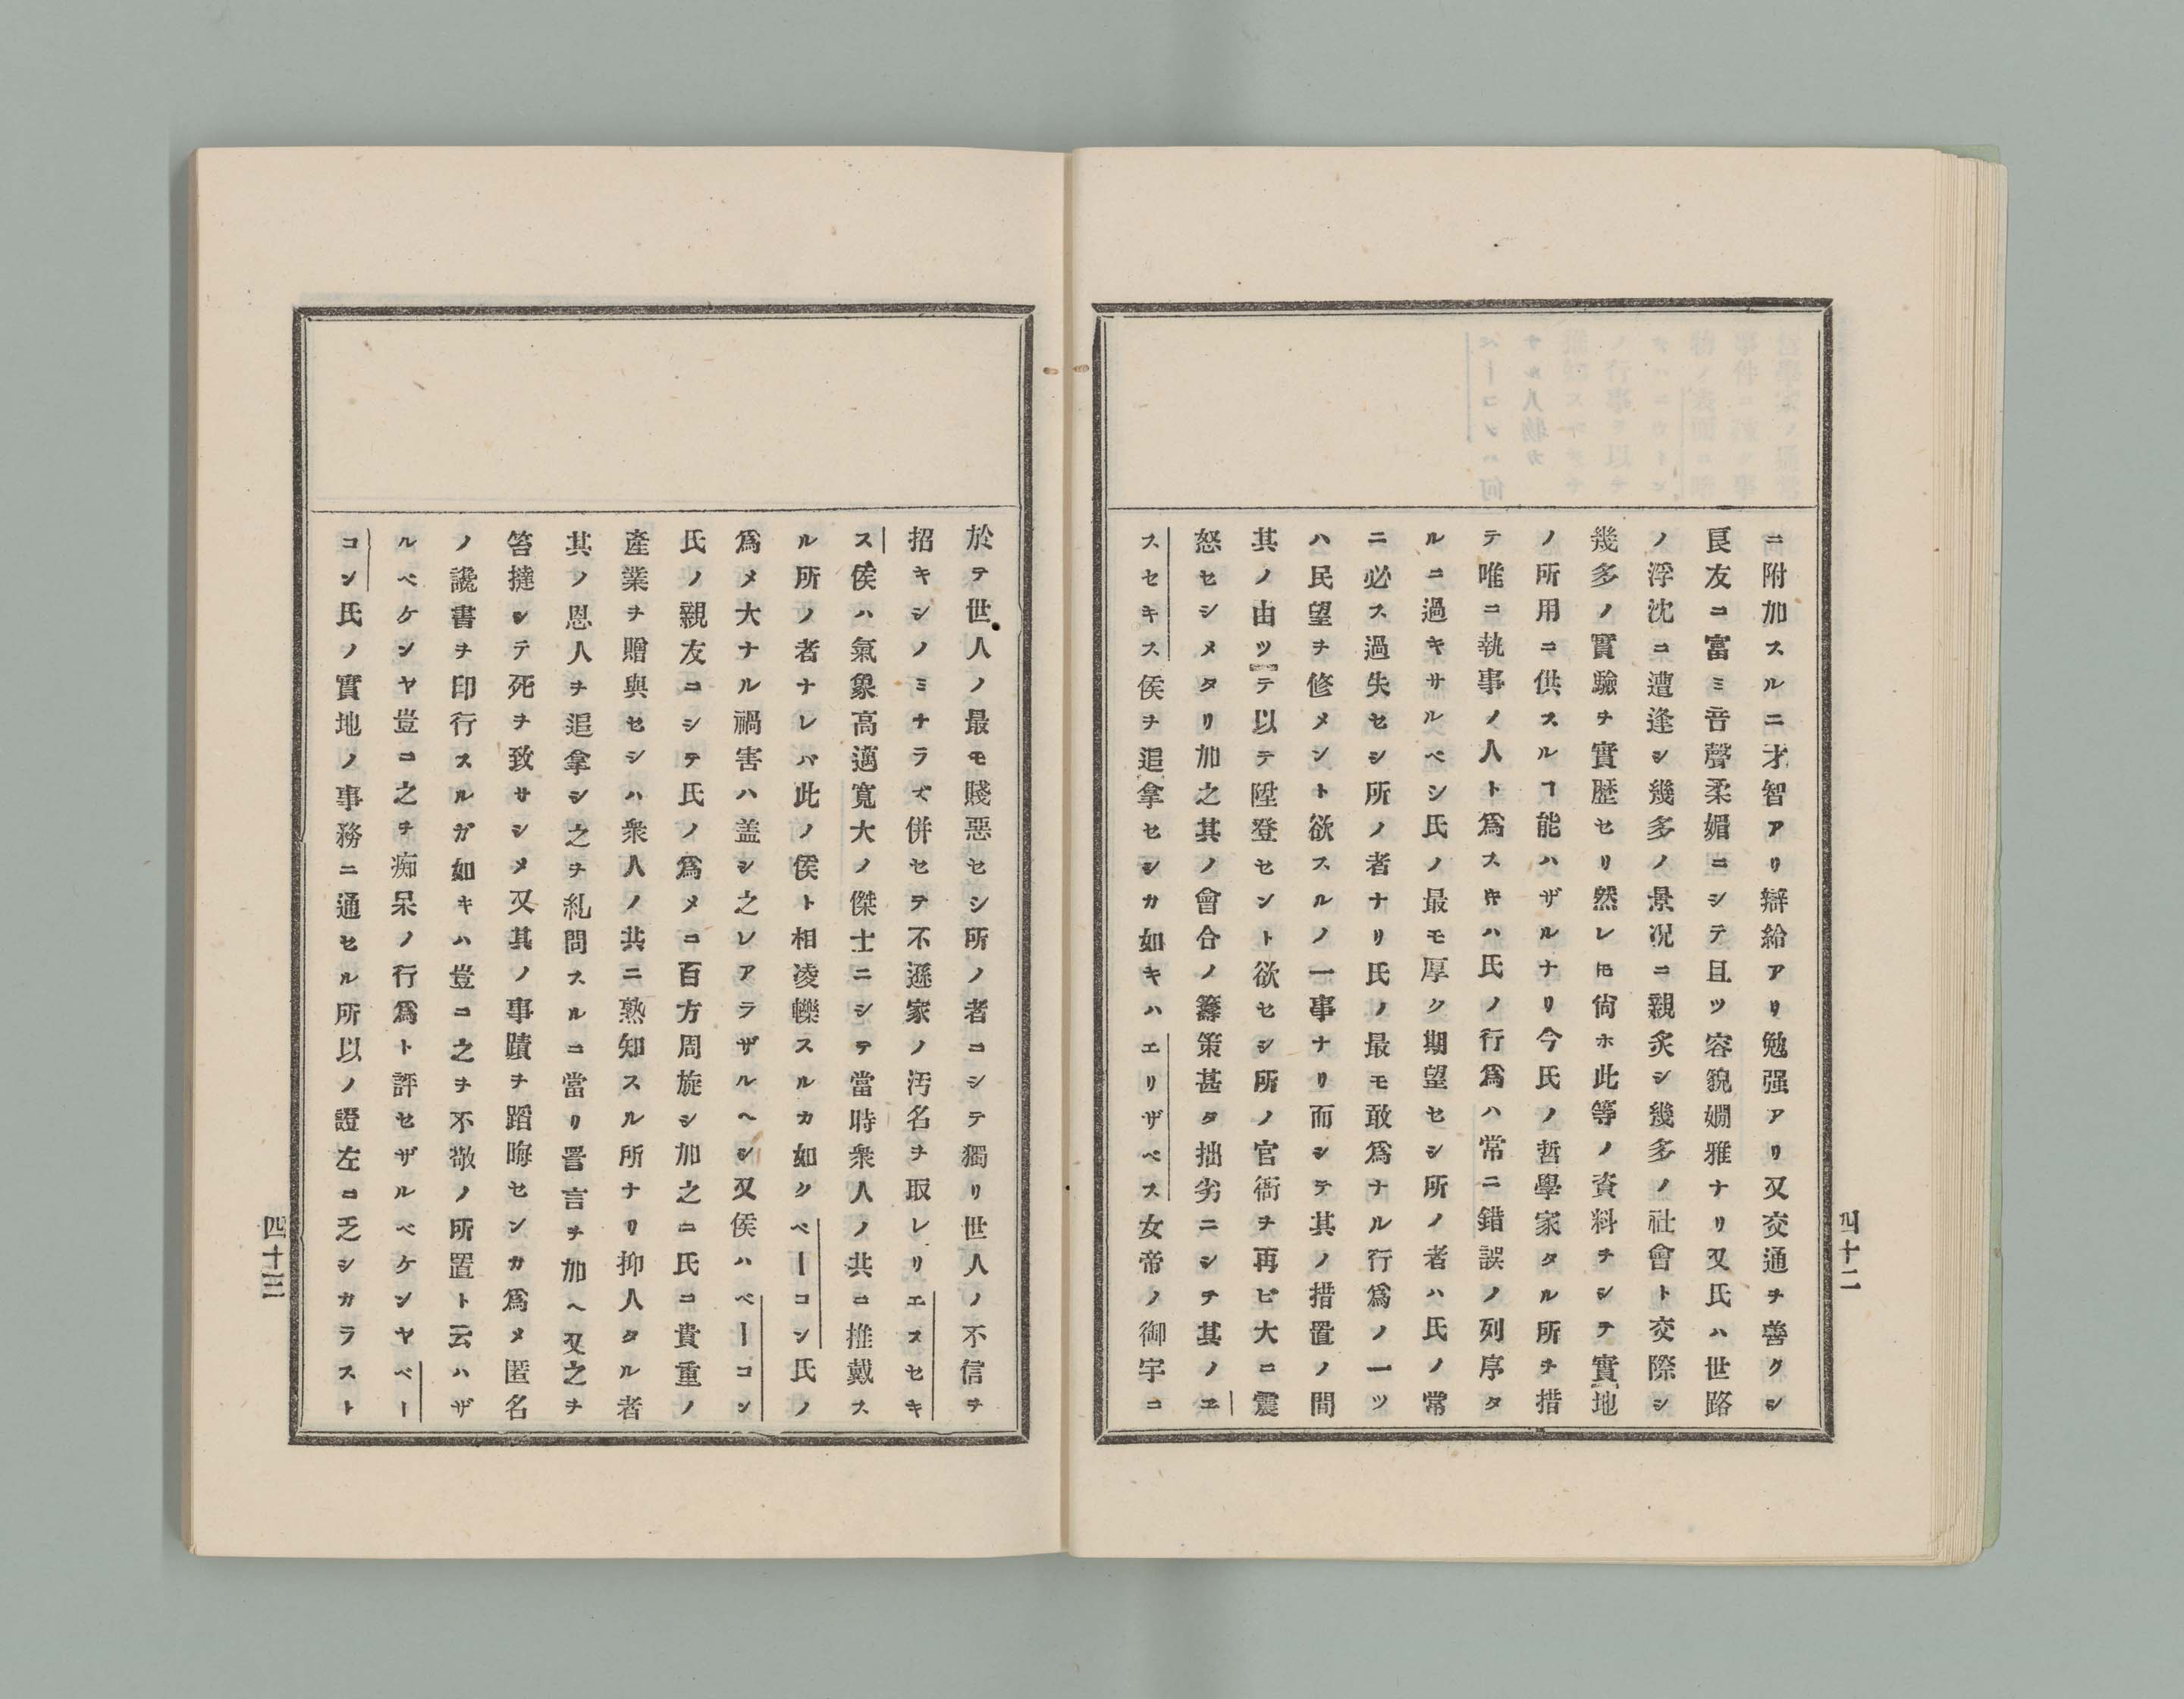 ニ附加スルニ才智アリ辯給アリ勉强アリ又交通ヲ善クシ
良友ニ富ミ音聲柔媚ニシテ且ツ容貌嫺雅ナリ又氏ハ世路
ノ浮沈ニ遭逢シ幾多ノ景況ニ親炙シ幾多ノ社會ト交際シ
幾多ノ實驗ヲ實歷セリ然レ𪜈尙ホ此等ノ資料ヲシテ實地
ノ所用ニ供スルヿ能ハザルナリ今氏ノ哲學家タル所ヲ措
テ唯ニ執事ノ人ト爲ス𬼀ハ氏ノ行爲ハ常ニ錯誤ノ列序タ
ルニ過キサルベシ氏ノ最モ厚ク期望セシ所ノ者ハ氏ノ常
ニ必ス過失セシ所ノ者ナリ氏ノ最モ敢爲ナル行爲ノ一ツ
ハ民望ヲ修メント欲スルノ一事ナリ而シテ其ノ措置ノ間
其ノ由ツテ以テ陞登セント欲セシ所ノ官衙ヲ再ビ大ニ震
怒セシメタリ加之其ノ會合ノ籌策甚タ拙劣ニシテ其ノエ
スセキス侯ヲ追拿セシカ如キハエリザベス女帝ノ御宇ニ
四十二
於テ世人ノ最モ賤惡セシ所ノ者ニシテ獨リ世人ノ不信ヲ
招キシノミナラズ併セテ不遜家ノ汚名ヲ取レリエスセキ
ス侯ハ氣象高邁寬大ノ傑士ニシテ當時衆人ノ共ニ推戴ス
ル所ノ者ナレバ此ノ侯ト相凌轢スルカ如クベーコン氏ノ
爲メ大ナル禍害ハ盖シ之レアラザルヘシ又侯ハベーコン
氏ノ親友ニシテ氏ノ爲メニ百方周旋シ加之ニ氏ニ貴重ノ
產業ヲ贈與セシハ衆人ノ共ニ熟知スル所ナリ抑人タル者
其ノ恩人ヲ追拿シ之ヲ糺問スルニ當リ詈言ヲ加ヘ又之ヲ
笞撻シテ死ヲ致サシメ又其ノ事蹟ヲ蹈晦センカ爲メ匿名
ノ讒書ヲ印行スルガ如キハ豈ニ之ヲ不敬ノ所置ト云ハザ
ルベケンヤ豈ニ之ヲ痴呆ノ行爲ト評セザルベケンヤベー
コン氏ノ實地ノ事務ニ通セル所以ノ證左ニ乏シカラスト
四十三